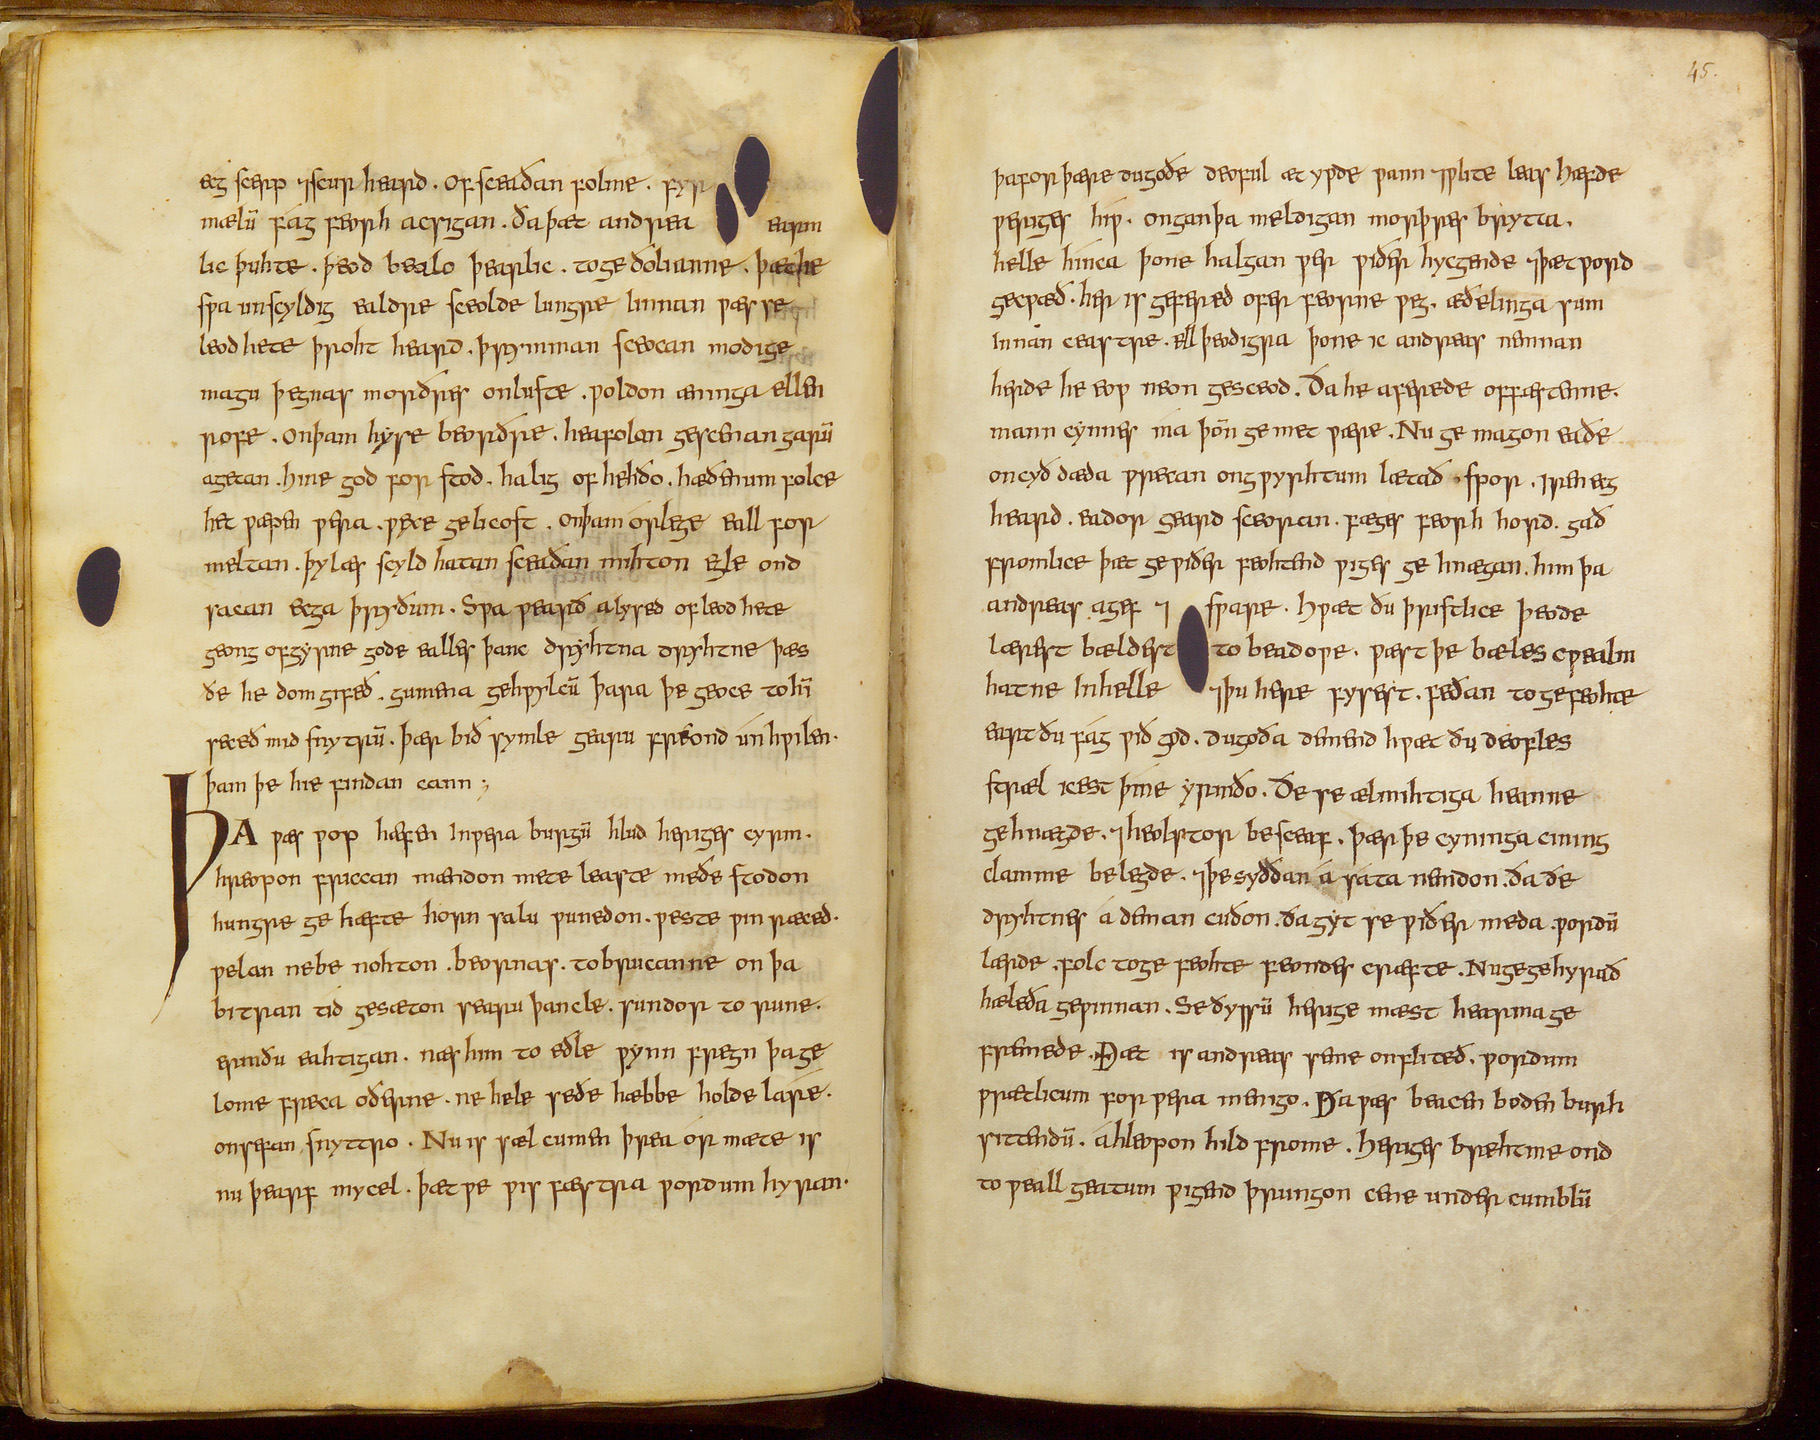 ecg scearp ⁊scur heard . Of sceaðan folme . fyr
mælū fag feorh acsigan . ða þæt andrea earm
lic þuhte . þeod bealo þearlic . to geðolianne . þæt he
swa unscyldig ealdre sceolde lungre linnan wæs se
leod hete þroht heard . þrymman sceocan modige
magu þegnas morðres onluste . woldon æninga ellen
rofe . onþam hysse beorðre . heafolan gescenan garū
agetan . hine god for stod . halig of hehðo . hæðenum folce
het wæpen wera . wexe gelicost . onþam orlege eall for
meltan . þylæs scyld hatan sceaðan mihton egle ond
sacan ecga þryðum . Swa wearð alysed of leod hete
geong ofgyrne gode ealles þanc dryhtna dryhtne þæs
ðe he dom gifeð . gumena gehwylcū þara þe geoce to hī
seceð mid snytrū . þær bið symle gearu freond unhwilen .
þam þe hie findan cann ;
ÞA wæs wop hæfen inwera burgū hlud heriges cyrm .
hreopon friccan mændon mete leaste meðe stodon
hungre ge hæfte horn salu wunedon . weste win ræced .
welan ne be nohton . beornas . to brucanne on þa
bitran tid gesæton searu þancle . sundor to rune .
ermðu eahtigan . næs him to eðle wynn fregn þa ge
lome freca oðerne . ne hele se ðe hæbbe holde lare .
onsefan snyttro . Nu is sæl cumen þrea ormæte is
nu þearf mycel . þæt we wis fæstra wordum hyran .
45.
þa for þære dugoðe deoful æt ywde wann ⁊wlite leas hæfde
weriges hiw . ongan þa meldigan morþres brytta .
helle hinca þone halgan wer wiðer hycgende ⁊þæt word
gecwæð . her is gefered ofer feorne weg . æðelinga sum
innan ceastre . ell þeodigra þone ic andreas nemnan
herde he eow neon gesceod . ða he aferede of fæstenne .
mann cynnes ma þoñ gemet wære . Nu ge magon eaðe
oncyð dæda wrecan on gewyrhtum lætað . spor . iren ecg
heard . eador geard sceoran . fæges feorh hord . gað
fromlice þæt ge wiðer feohtend wiges ge hnægan . him þa
andreas agef ⁊ sware . Hwæt ðu þristlice þeode
lærest bældest to beadowe . wæst þe bæles cwealm
hatne inhelle ⁊þu here fysest . feðan to gefeohte
eart ðu fag wið god . dugoða demend hwæt ðu deofles
stræl icest þine yrmðo . ðe se ælmihtiga heanne
gehnægde . ⁊heolstor be sceaf . þær þe cyninga cining
clamme belegde . ⁊þe syððan á satan nemdon . ða ðe
dryhtnes á deman cuðon . ða gyt se wiðer meda . wordū
lærde . folc to ge feohte feondes cræfte . Nu ge gehyrað
hæleða gewinnan . Se ðyssū herige mæst hearma ge
fremede . Ðæt is andreas se me onfliteð . wordum
wrætlicum for wera menigo . Ða wæs beacen boden burh
sittendū . áhleopon hild frome . heriges brehtme ond
to weall geatum wigend þrungon cene under cumblū